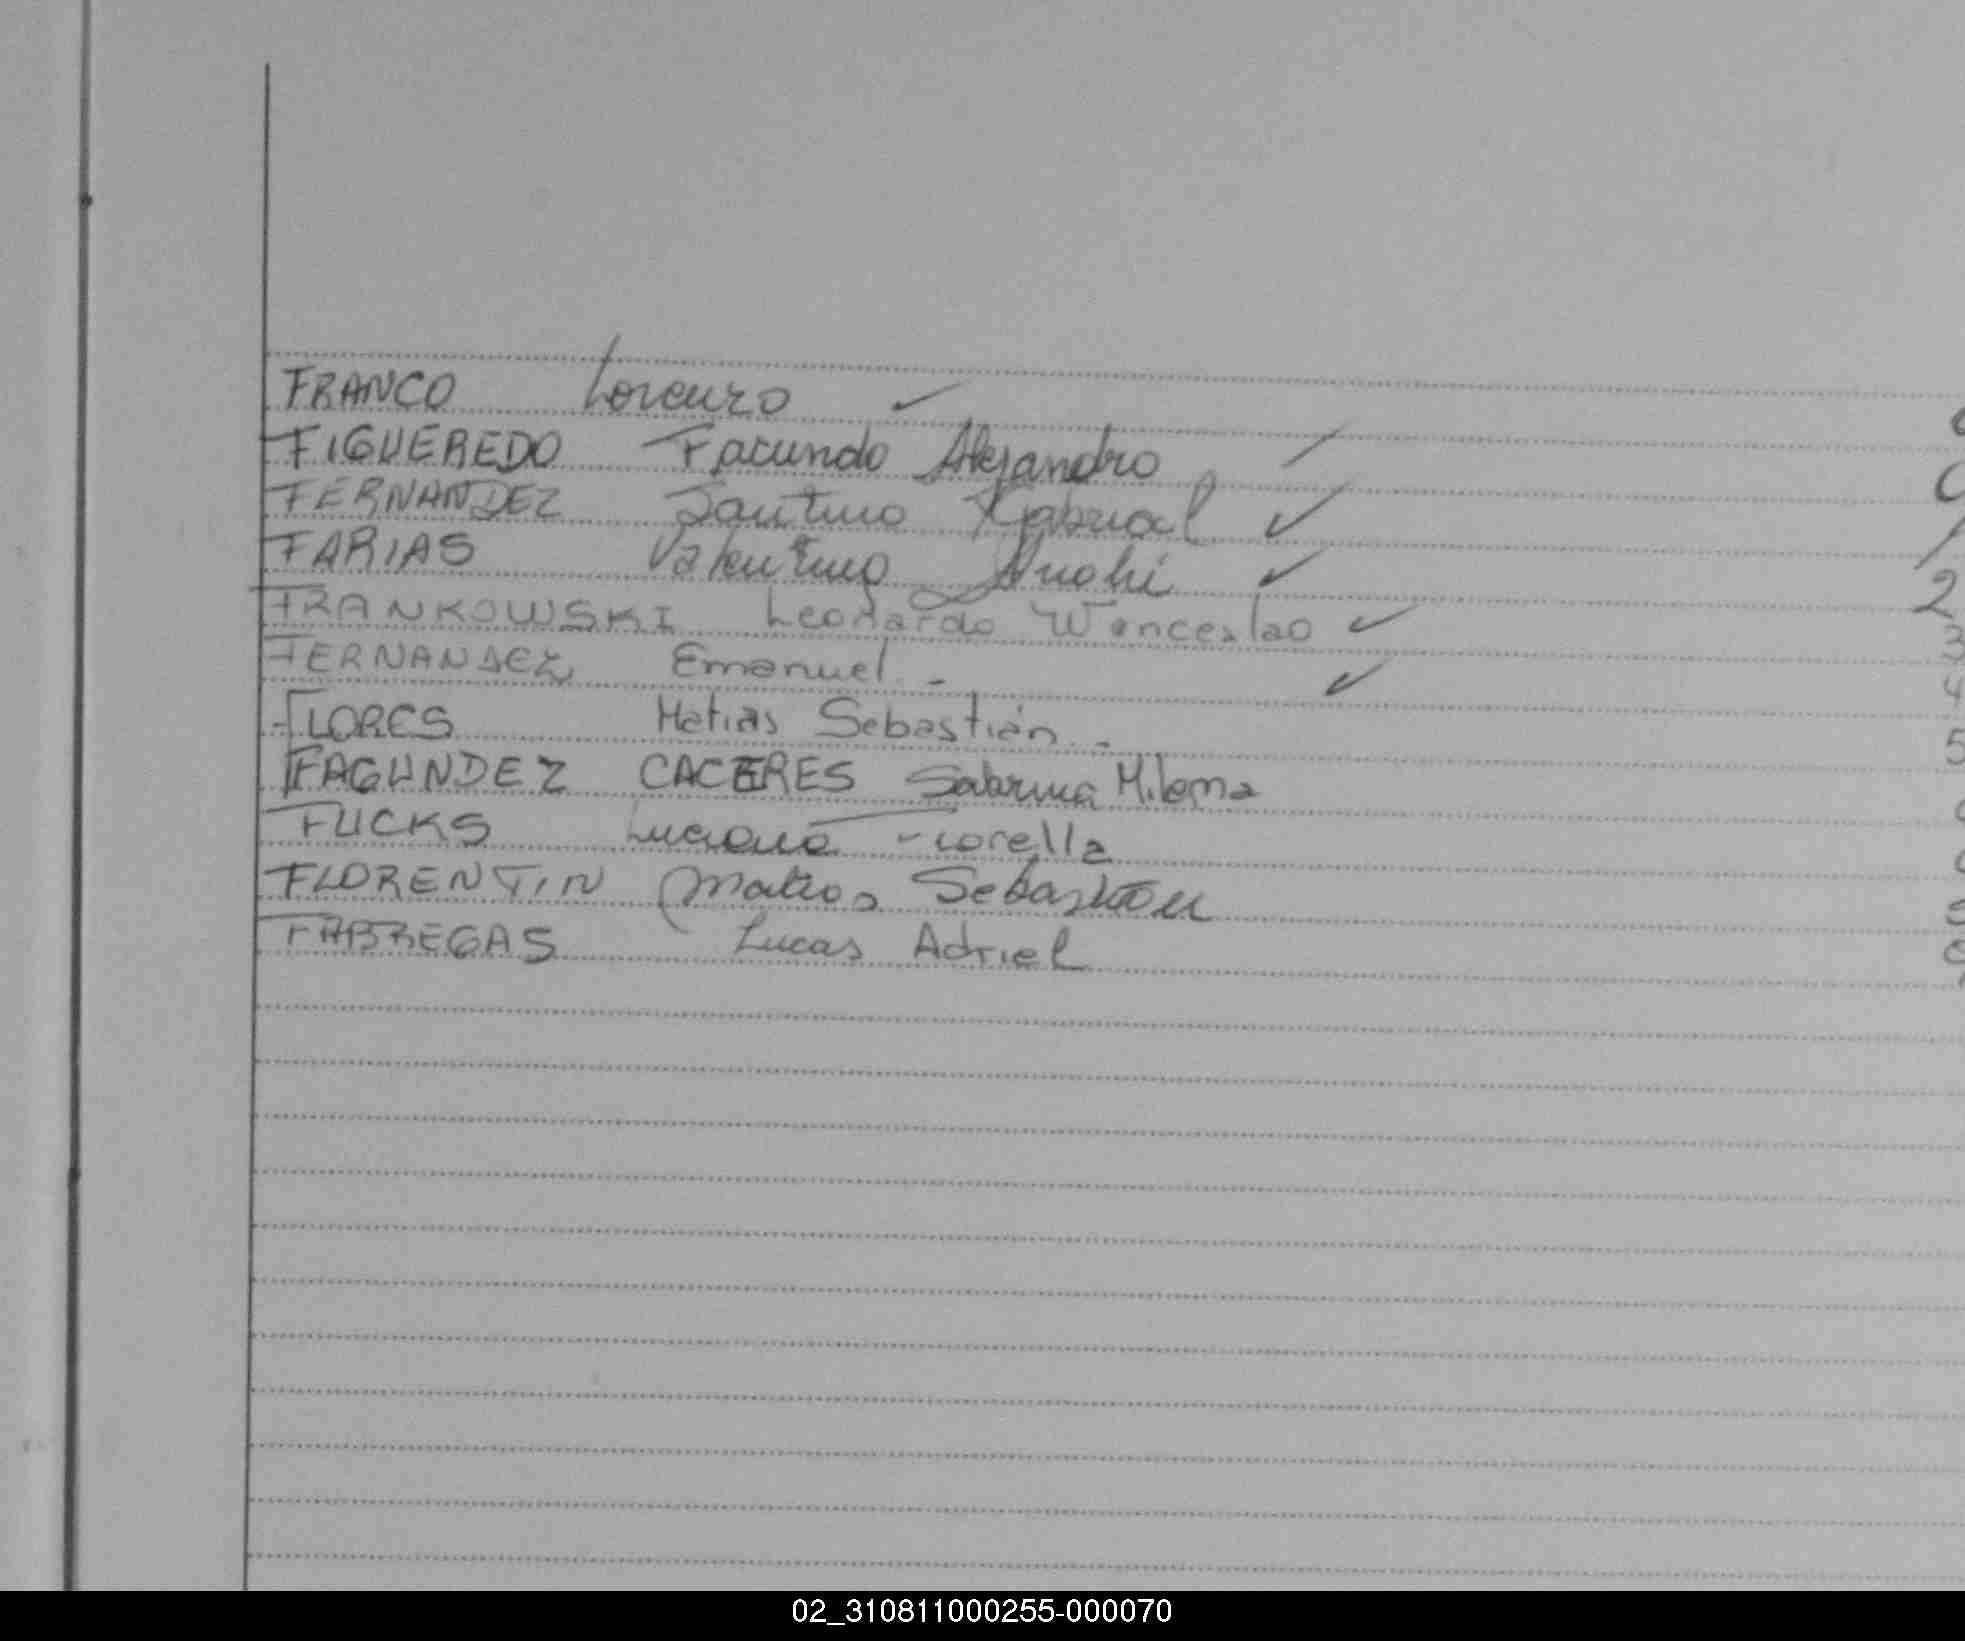 FRANCO Lorenzo ✓
FIGUEREDO Facundo Alejandro
FERNANDEZ Santino Gabriel ✓
FARIAS Valentino ✓
FRANKOWSKI Leonardo Wenceslao ✓ 2
FERNANDEZ Emanuel - ✓ 3
FLORES Matias Sebastián - 4
FAGUNDEZ CACERES Sabrina Milena 5
FUCKS Luciana Fiorella
FLORENTIN Matias Sebastian
FABREGAS Lucas Adriel
02_310811000255-000070